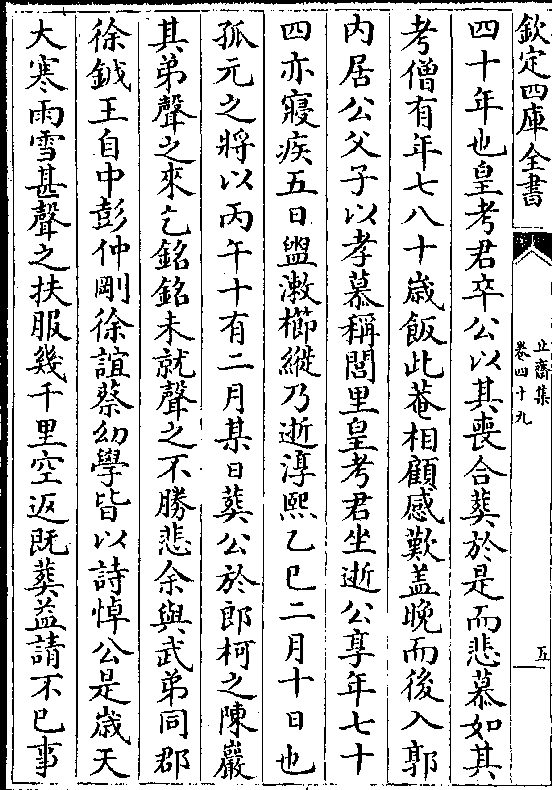 欽定四庫全書
止齋集
卷四十九
五
四十年也皇考君卒公以其喪合葬於是而悲慕如其
考僧有年七八十歲飯此菴相顧感歎蓋晚而後入郭
内居公父子以孝慕稱閭里皇考君坐逝公享年七十
四亦寢疾五日盥漱櫛縰乃逝淳熙乙巳二月十日也
孤元之將以丙午十有二月某日葬公於郎柯之陳巖
其弟聲之來乞銘銘未就聲之不勝悲余與武弟同郡
徐鉞王自中彭仲剛徐誼蔡幼學皆以詩悼公是歲天
大寒雨雪甚聲之扶服幾千里空返既葬益請不已事